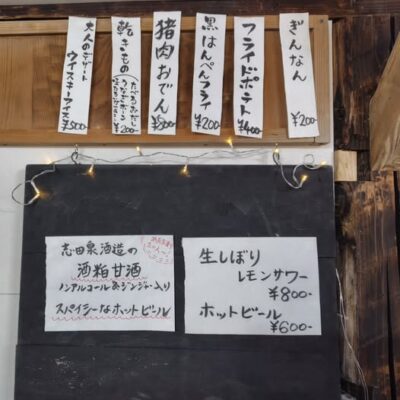 ぎんなん
¥200-
フライドポテト
¥400-
黒はんぺんフライ
¥200-
猪肉おでん
¥500-
乾きもの
¥200-
大人のデザート
ウイスキーアイス
¥500-
志田泉酒造の
酒粕甘酒
ノンアルコール&ジンジャー入り
スパイシーなホットビール
生しぼり
レモンサワー
¥800-
ホットビール
¥600-